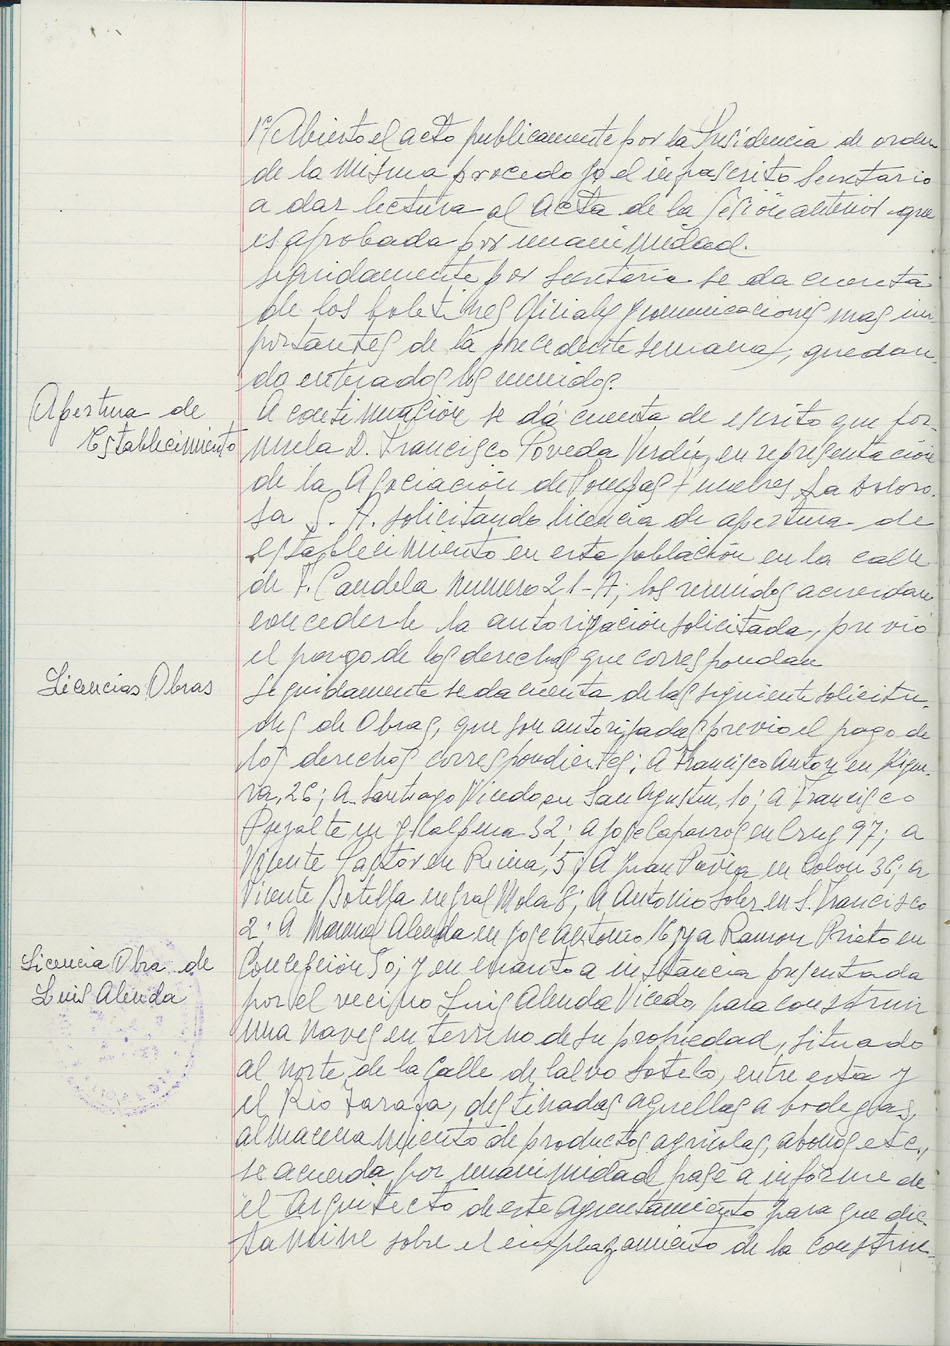 1º Abierto el acto publicamente por la Presidencia de orden
de la misma procedo yo el infrascrito Secretario
a dar lectura al acta de la sesión anterior que
es aprobada por unanimidad.
Seguidamente por Secretaria se da cuenta
de los boletines oficiales y comunicaciones mas im-
portantes de la precedente semana, quedan-
do enterados los reunidos.
Apertura de
Establecimiento
A continuación se dá cuenta de escrito que for-
mula D. Francisco Poveda Verdú, en representación
de la Asociación de Pompas Funebres La Doloro-
sa S. A. solicitando licencia de apertura de
establecimiento en esta población en la calle
de F. Candela numero 21-A; los reunidos acuerdan
concederle la autorización solicitada, previo
el pago de los derechos que correspondan
Licencias Obras
Seguidamente se da cuenta de las siguiente solicitu-
des de Obras, que son autorizadas previo el pago de
los derechos correspondientes; A Francisco Anton en
26; A Santiago Vicedo en San Agustin, 10; a Francisco
en 32; a Jose en Cruz 97; a
Vicente Pastor en Reina, 5; A Juan Pavia en Colon 36; a
Vicente Botella en Gral Mola 8; A Antonio Soler en S. Francisco
2; A Manuel Alenda en Jose Antonio 16; y a Ramon Prieto en
Concepción 50; y en cuanto a instancia presentada
Licencia Obra de
Luis Alenda
por el vecino Luis Alenda Vicedo, para construir
una naves en terreno de su propiedad, situado
al norte de la Calle de Calvo Sotelo, entre esta y
el Rio Tarafa, destinadas aquellas a bodegas,
almacenamiento de productos agricolas, abonos etc.,
se acuerda por unanimidad pase a informe de
el Arquitecto de este Ayuntamiento para que dic-
tamine sobre el emplazamiento de la construc-